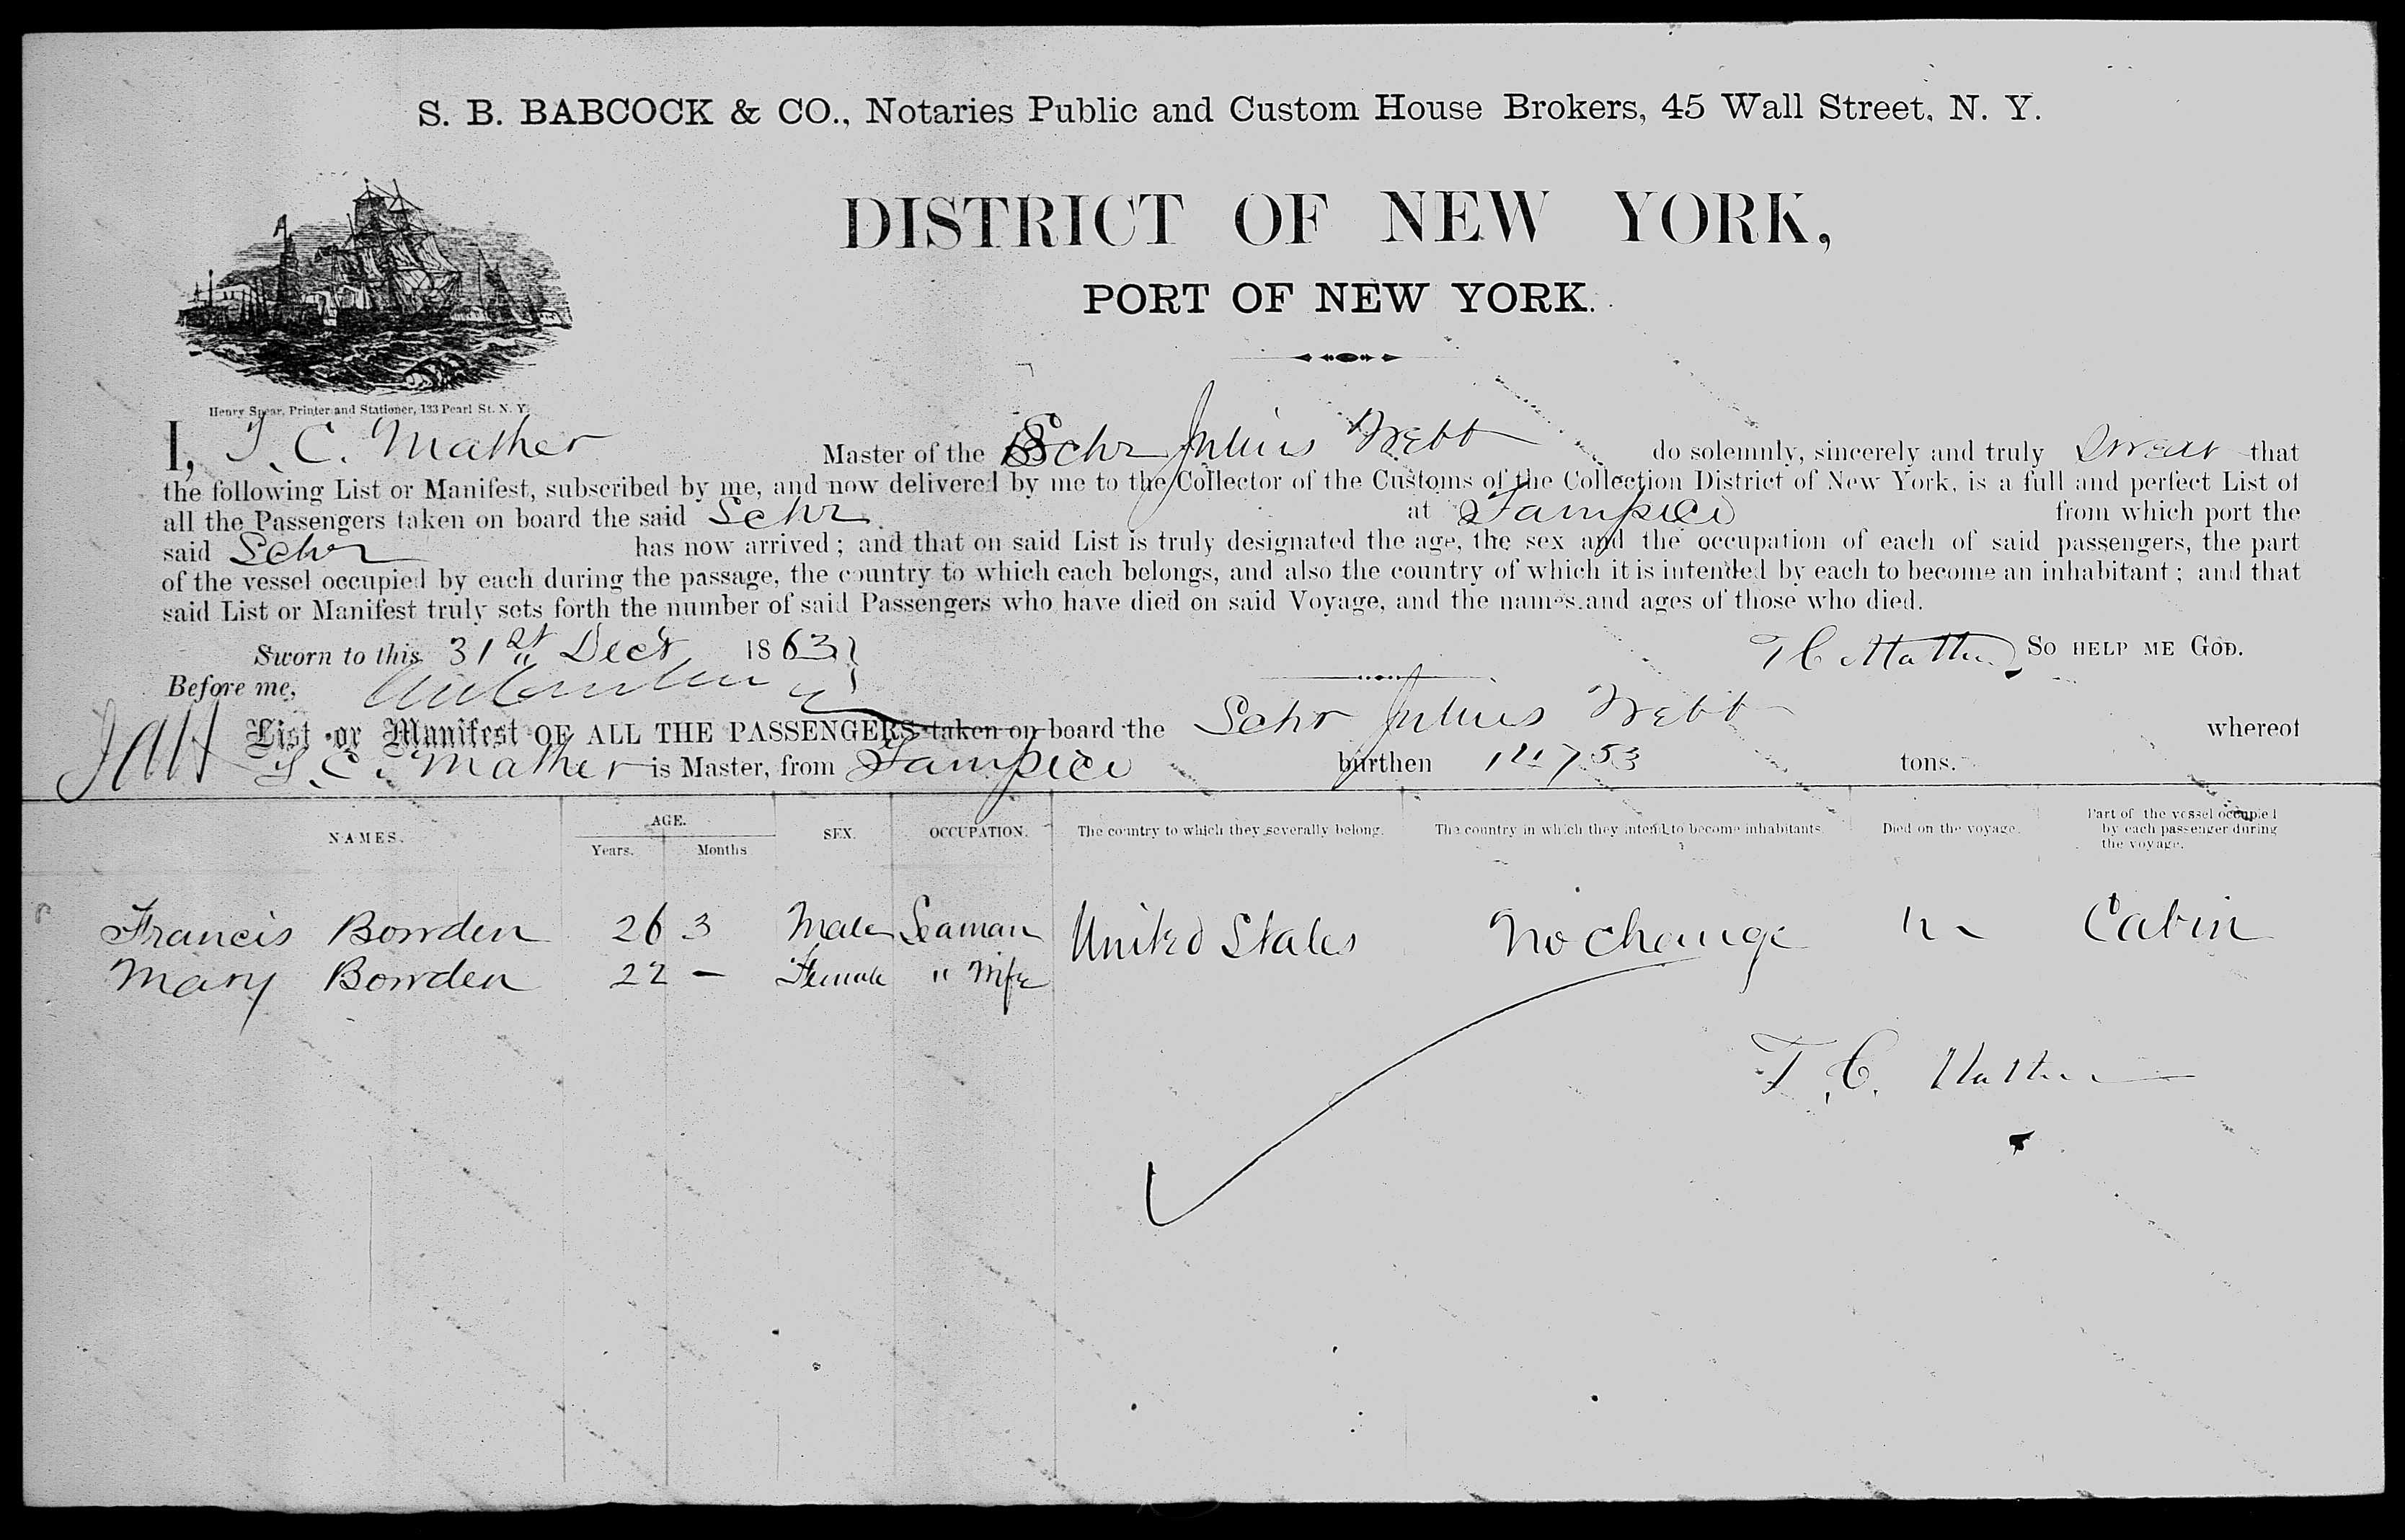 S. B. BABCOCK & CO., Notaries Public and Custom House Brokers, 45 Wall Street, N. Y.
DISTRICT OF NEW YORK,
PORT OF NEW YORK.
Henry Spear, Printer and Stationer, 133 Pearl St. N. Y.
I, T. C. Mather Master of the Schr Julius Webb do solemnly, sincerely and truly Swear that
the following List or Manifest, subscribed by me, and now delivered by me to the Collector of the Customs of the Collection District of New York, is a full and perfect List of
all the Passengers taken on board the said Schr at Tampico from which port the
said Schr has now arrived; and that on said List is truly designated the age, the sex and the occupation of each of said passengers, the part
of the vessel occupied by each during the passage, the country to which each belongs, and also the country of which it is intended by each to become an inhabitant; and that
said List or Manifest truly sets forth the number of said Passengers who have died on said Voyage, and the names and ages of those who died.
Sworn to this 31st Decr 1863 T C Mather SO HELP ME GOD.
Before me,
List or Manifest OF ALL THE PASSENGERS taken on board the Schr Julius Webb whereof
T. C. Mather is Master, from Tampico burthen tons.
NAMES. AGE. Years. Months SEX. OCCUPATION. The country to which they severally belong. The country in which they intend to become inhabitants. Died on the voyage. Part of the vessel occupied by each passenger during the voyage.
Francis Bowden 26 3 Male Seaman United States No change Cabin
Mary Bowden 22 — Female " Wife
T. C. Mather